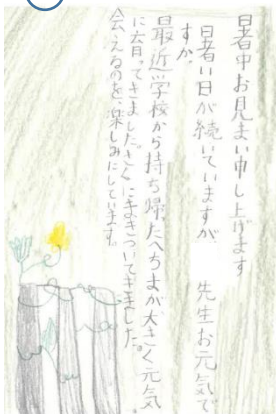 暑中お見まい申し上げます
暑い日が続いていますが 先生お元気で
すか。
最近学校から持ち帰たへちまが大きく元気
に育ってきました。さくにまきついてきました。
会えるのを、楽しみにしています。